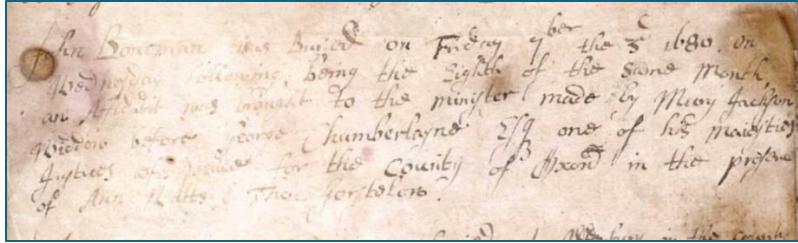 John Boweman was Buried on Friday 7ber the 3d 1680. on
Wednesday following, being the Eighth of the Same Month
an Affidvit was brought to the minister made by Mary Jackson
Widdow before George Chamberlayne Esq one of his Majesties
Justices of the peace for the County of Oxond in the presence
of Ann Watts & Tho:
in the county